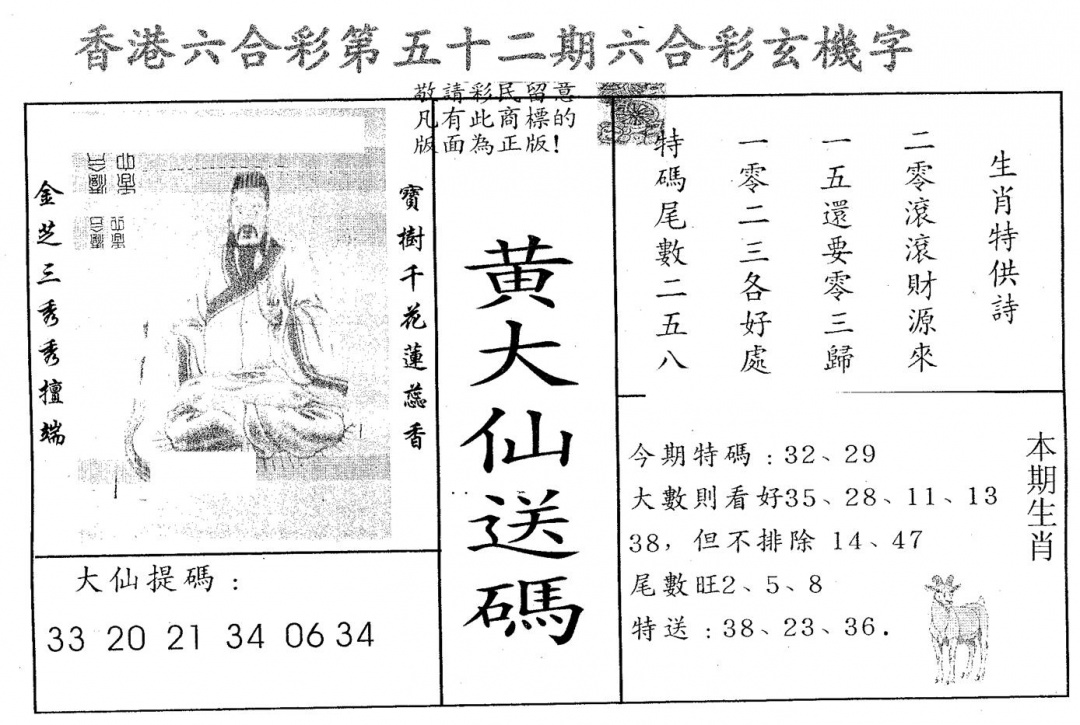 香港六合彩第五十二期六合彩玄機字
敬請彩民留意
凡有此商標的
版面為正版!
寶樹千花蓮蕊香
金芝三秀秀擅端
大仙提碼：
33 20 21 34 06 34
黃大仙送碼
生肖特供詩
二零滾滾財源來
一五還要零三歸
一零二三各好處
特碼尾數二五八
本期生肖
今期特碼：32、29
大數則看好35、28、11、13
38，但不排除 14、47
尾數旺2、5、8
特送：38、23、36．